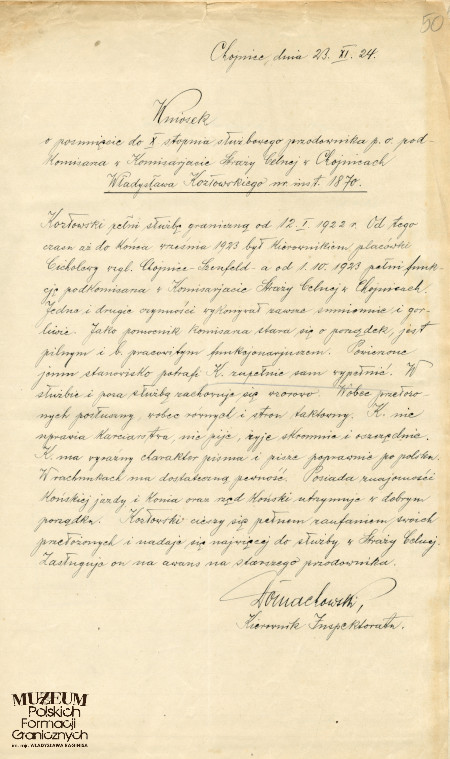 50
Chojnice, dnia 23. XI. 24.
Wniosek
o posunięcie do X stopnia służbowego przodownika p. o. pod-
komisarza w Komisarjacie Straży Celnej w Chojnicach
Władysława Kozłowskiego nr. inst. 1870.
Kozłowski pełni służbę graniczną od 12. I. 1922 r. Od tego
czasu aż do końca września 1923 był kierownikiem placówki
Cichołowy wzgl. Chojnice-Szenfeld - a od 1. 10. 1923 pełni funk-
cję podkomisarza w Komisarjacie Straży Celnej w Chojnicach.
Jedne i drugie czynności wykonywał zawsze sumiennie i gor-
liwie. Jako pomocnik komisarza stara się o porządek, jest
pilnym i b. pracowitym funkcjonarjuszem. Powierzone
jemu stanowisko potrafi K. zupełnie sam wypełnić. W
służbie i poza służbą zachowuje się wzorowo. Wobec przełożo-
nych posłuszny, wobec równych i stron taktowny. K. nie
uprawia karciarstwa, nie pije, żyje skromnie i oszczędnie.
K. ma wyraźny charakter pisma i pisze poprawnie po polsku.
W rachunkach ma dostateczną pewność. Posiada znajomość
końskiej jazdy i konia oraz rząd koński utrzymuje w dobrym
porządku. Kozłowski cieszy się pełnem zaufaniem swoich
przełożonych i nadaje się najwięcej do służby w Straży Celnej.
Zasługuje on na awans na starszego przodownika.
Domachowski,
Kierownik Inspektoratu.
MUZEUM
Polskich
Formacji
Granicznych
im. mjr. WŁADYSŁAWA RAGINISA